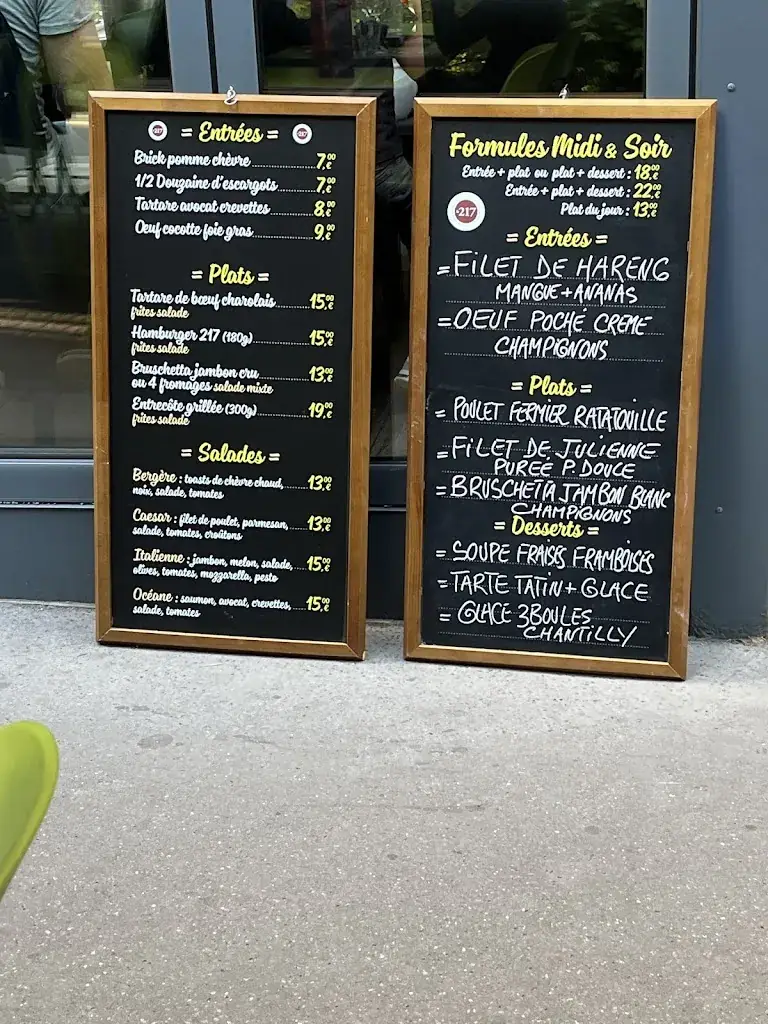 217
= Entrées =
217
Brick pomme chèvre 7,00€
1/2 Douzaine d'escargots 7,00€
Tartare avocat crevettes 8,00€
Oeuf cocotte foie gras 9,00€
= Plats =
Tartare de bœuf charolais 15,00€
frites salade
Hamburger 217 (180g) 15,00€
frites salade
Bruschetta jambon cru 13,00€
ou 4 fromages salade mixte
Entrecôte grillée (300g) 19,00€
frites salade
= Salades =
Bergère : toasts de chèvre chaud, 13,00€
noix, salade, tomates
Caesar : filet de poulet, parmesan, 13,00€
salade, tomates, croûtons
Italienne : jambon, melon, salade, 15,00€
olives, tomates, mozzarella, pesto
Océane : saumon, avocat, crevettes, 15,00€
salade, tomates
Formules Midi & Soir
Entrée + plat ou plat + dessert : 18,00€
Entrée + plat + dessert : 22,00€
Plat du jour : 13,00€
217
= Entrées =
= FILET DE HARENG
MANGUE + ANANAS
= OEUF POCHÉ CREME
CHAMPIGNONS
= Plats =
= POULET FERMIER RATATOUILLE
= FILET DE JULIENNE
PUREE P. DOUCE
= BRUSCHETTA JAMBON BLANC
CHAMPIGNONS
= Desserts =
= SOUPE FRAISES FRAMBOISES
= TARTE TATIN + GLACE
= GLACE 3 BOULES
CHANTILLY